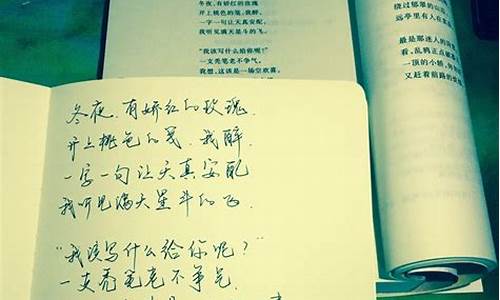 冬夜,有娇红的玫瑰
开上桃色的笺,我醉,
一字一句让天真安配
我听见满天星斗的飞。
"我该写什么给你呢?"
一支秃笔老不争气,
我想,这该是一场空欢喜,
绕过郁翠的山
远亭里有人在
最是那迷人的
看,乱鸦正点破
一顶的小轿,
又赶着前路的
冬夜,有娇红的玫瑰,
开上桃色的笺,我醉,
一字一句让天真安配
我听见满天星斗的飞
"我该写什么给你呢?"
一支秃笔老不争气,